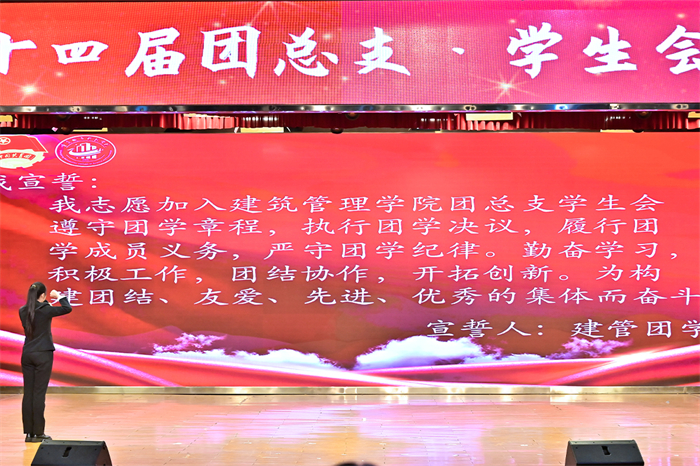 十四届团总支·学生会
我宣誓：
我志愿加入建筑管理学院团总支学生会
遵守团学章程，执行团学决议，履行团
学成员义务，严守团学纪律。勤奋学习，
积极工作，团结协作，开拓创新。为构
建团结、友爱、先进、优秀的集体而奋斗
宣誓人：建管团学